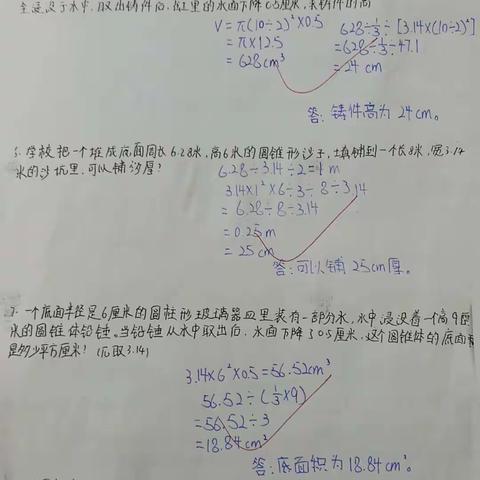 全浸没于水中,取出铸件后,缸里的水面下降0.5厘米,求铸件的高
V=π(10÷2)²×0.5
=π×12.5
=628cm³
628÷1/3÷[3.14×(10÷2)²]
=628÷1/3÷47.1
=24cm
答:铸件高为24cm。
学校把一个堆成底面周长6.28米,高6米的圆锥形沙子,填铺到一个长8米,宽3.14
米的沙坑里,可以铺沙厚?
6.28÷3.14÷2=1m
3.14×1²×6÷3÷8÷3.14
=6.28÷8÷3.14
=0.25m
=25cm
答:可以铺25cm厚。
7.一个底面半径是6厘米的圆柱形玻璃器皿里装有一部分水,水中浸没着一个高9厘
米的圆锥体铅锤。当铅锤从水中取出后,水面下降了0.5厘米,这个圆锥体的底面
是多少平方厘米?(π取3.14)
3.14×6²×0.5=56.52cm³
56.52÷(1/3×9)
=56.52÷3
=18.84cm²
答:底面积为18.84cm²。